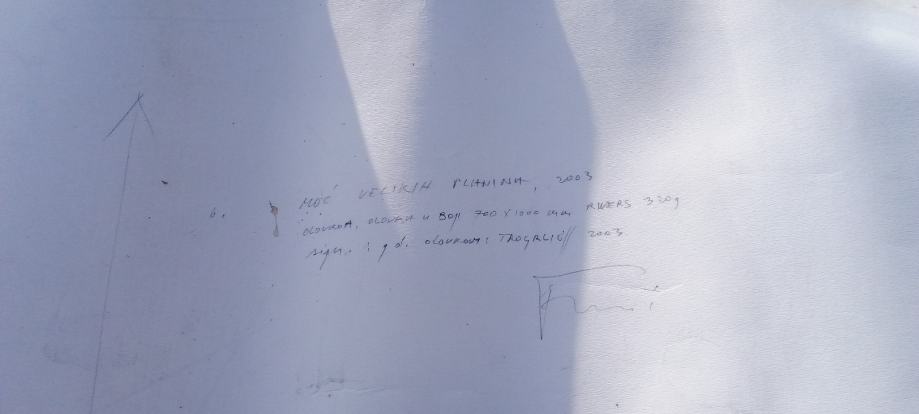 6.
MOĆ VELIKIH PLANINA, 2003
OLOVKA, OLOVKA U BOJI 700 X 1000 mm RIVERS 320g
sign. : g d. OLOVKOM: TROGRLIĆ// 2003.